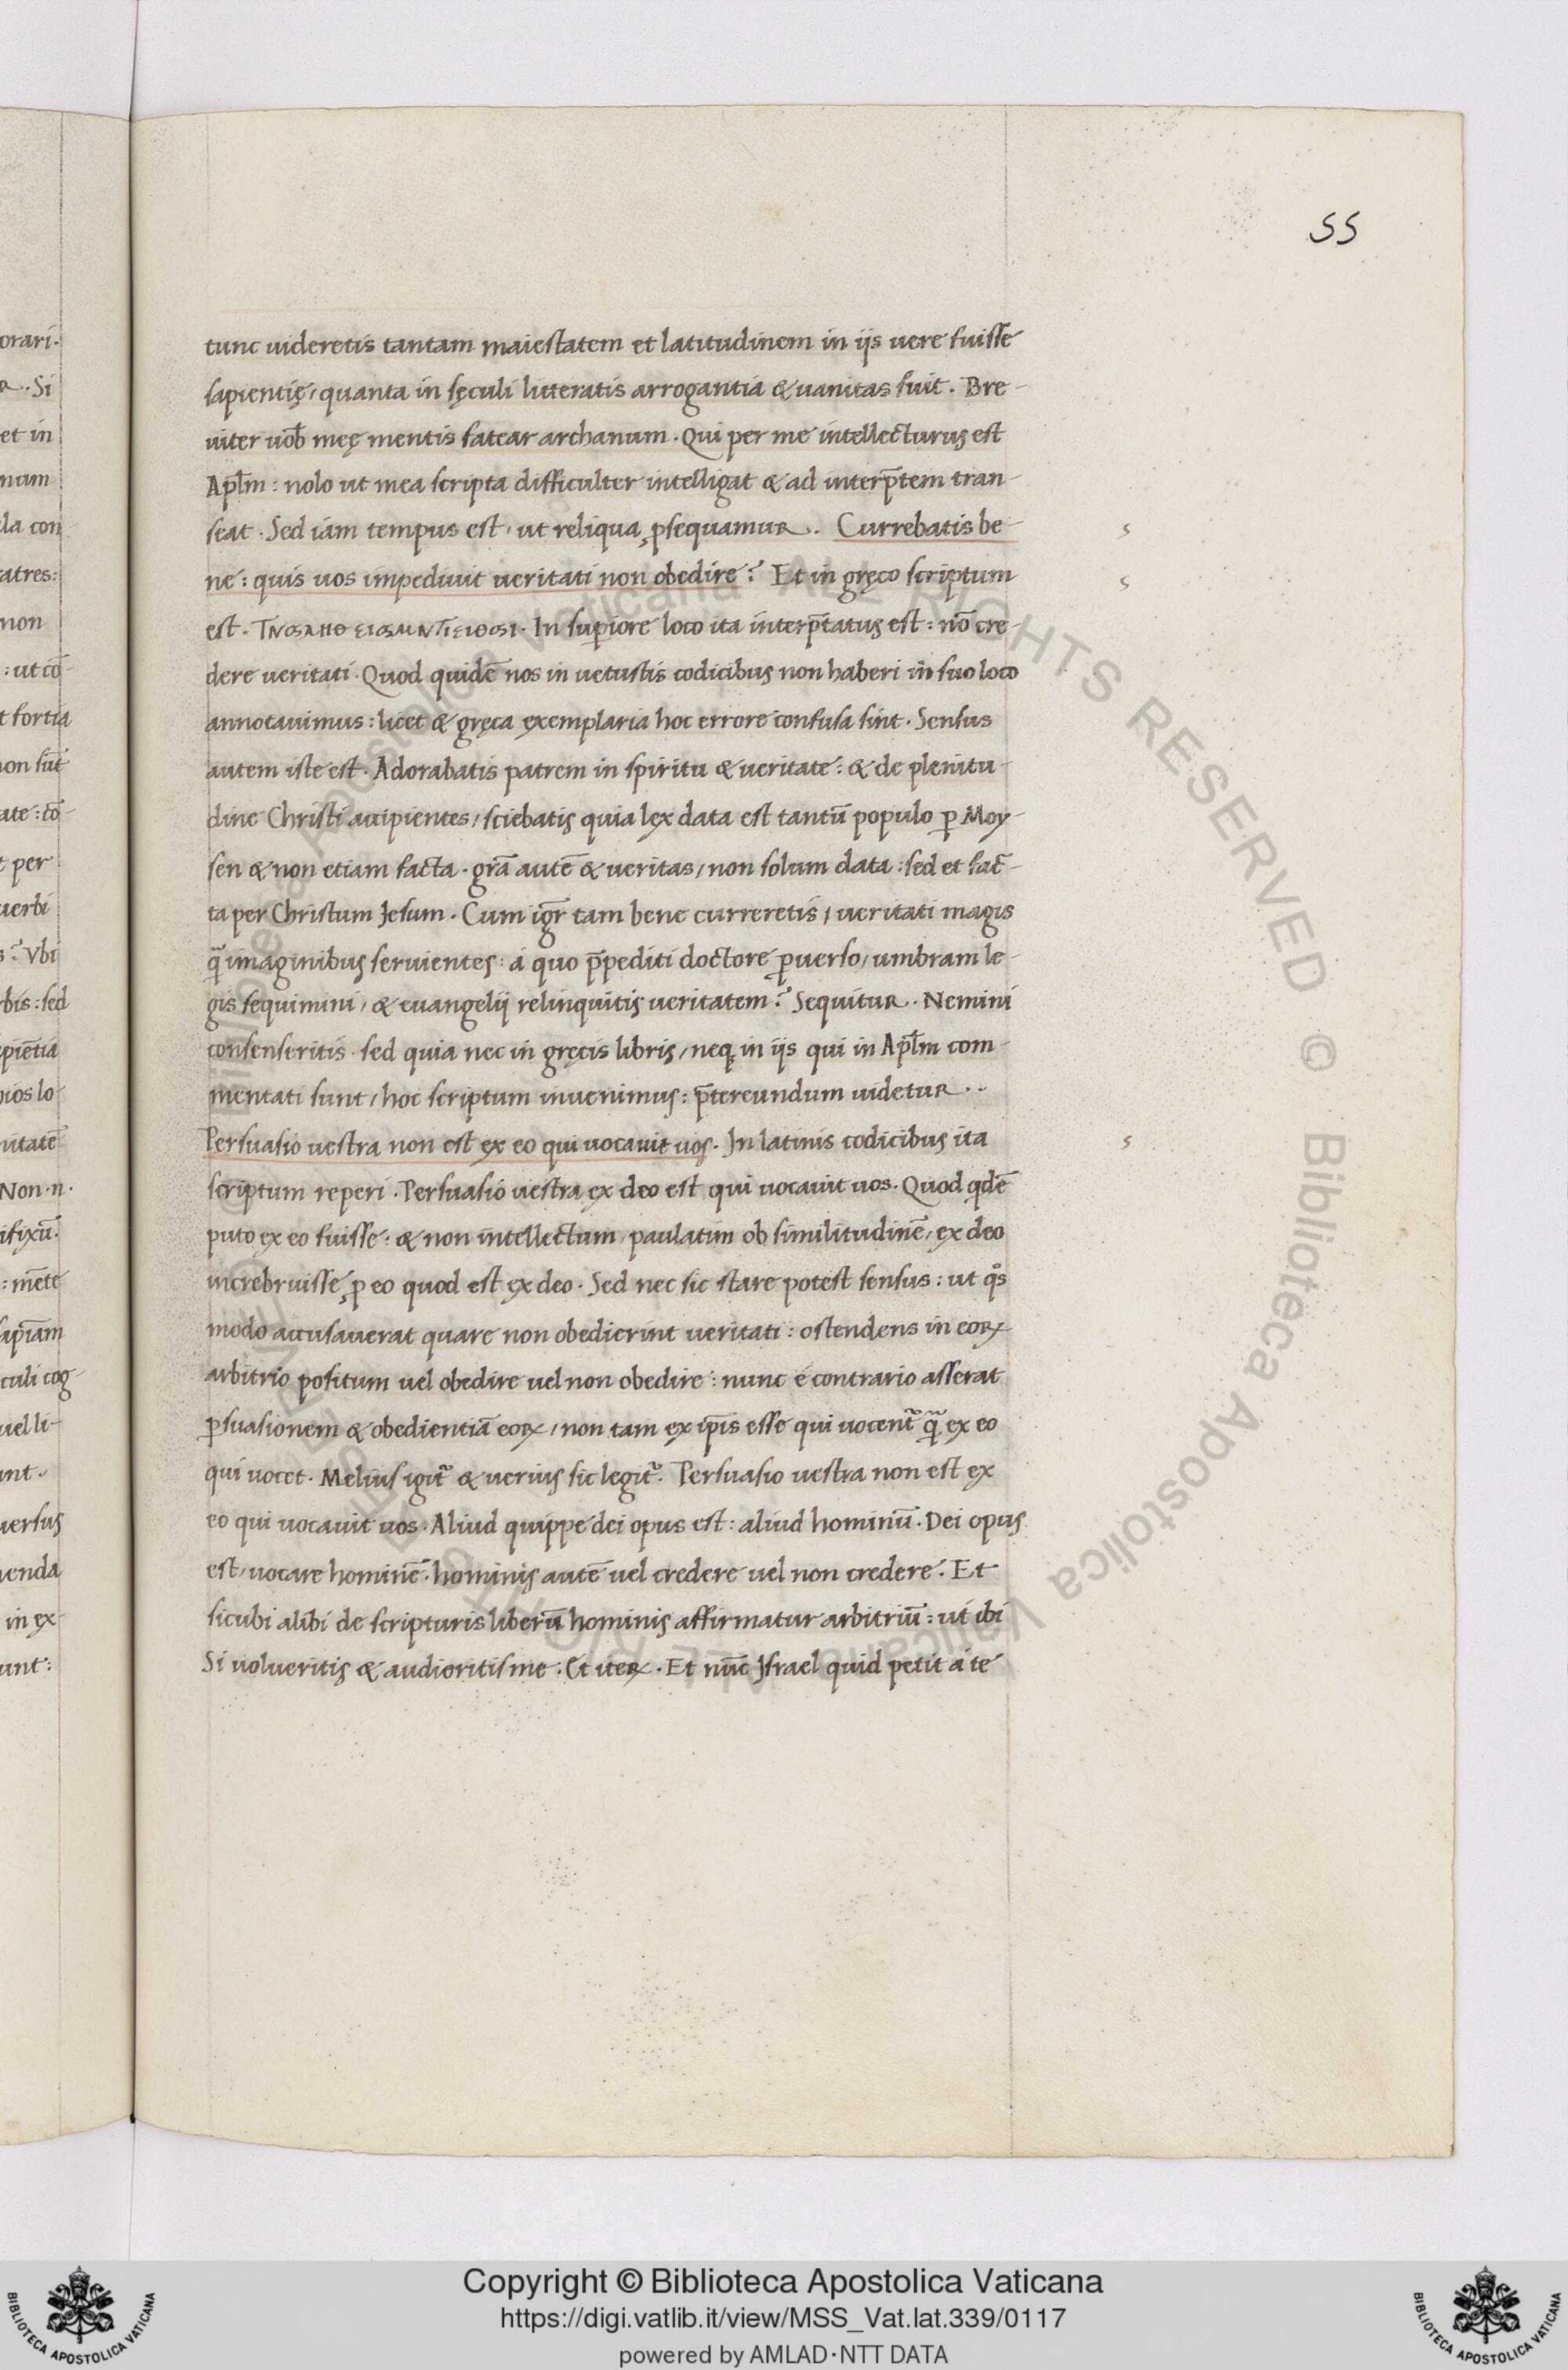 55
tunc uideretis tantam maiestatem et latitudinem in ijs uere fuisse
sapientię, quanta in sęculi litteratis arrogantia & uanitas fuit. Bre-
uiter uob̄ męę mentis fatear archanum. Qui per me intellecturus est
Apl̄m: nolo ut mea scripta difficulter intelligat & ad interp̄tem tran-
seat. Sed iam tempus est, ut reliqua ꝓsequamur. Currebatis be-
ne: quis uos impediuit ueritati non obedire? Et in gręco scriptum
est. In suꝑiore loco ita interp̄tatus est: nō cre-
dere ueritati. Quod quidē nos in uetustis codicibus non haberi in suo loco
annotauimus: licet & gręca exemplaria hoc errore confusa sint. Sensus
autem iste est. Adorabatis patrem in spiritu & ueritate: & de plenitu-
dine Christi accipientes, sciebatis quia lex data est tantū populo ꝑ Moy-
sen & non etiam facta. gr̄a autē & ueritas, non solum data: sed et fac-
ta per Christum Jesum. Cum igr̄ tam bene curreretis, ueritati magis
q̄ imaginibus seruientes: á quo p̄pediti doctore ꝑuerso, umbram le-
gis sequimini, & euangelij relinquitis ueritatem? Sequitur. Nemini
consenseritis. sed quia nec in gręcis libris, neq; in ijs qui in Apl̄m com-
mentati sunt, hoc scriptum inuenimus: p̄tereundum uidetur..
Persuasio uestra non est ex eo qui uocauit uos. In latinis codicibus ita
scriptum reperi. Persuasio uestra ex deo est qui uocauit uos. Quod qdē
puto ex eo fuisse: & non intellectum, paulatim ob similitudinē, ex deo
increbruisse, ꝓ eo quod est ex deo. Sed nec sic stare potest sensus: ut qͦs
modo accusauerat quare non obedierint ueritati: ostendens in eoꝝ
arbitrio positum uel obedire uel non obedire: nunc é contrario asserat
ꝑsuasionem & obedientiā eoꝝ, non tam ex ip̄is esse qui uocent᷑ q̄ ex eo
qui uocet. Melius igit᷑ & uerius sic legit᷑. Persuasio uestra non est ex
eo qui uocauit uos. Aliud quippe dei opus est: aliud hominū. Dei opus
est, uocare hominē. hominis autē uel credere uel non credere. Et
sicubi alibi de scripturis liberū hominis affirmatur arbitriū: ut ibi
Si uolueritis & audieritis me. Et iteꝝ. Et nūc Jsrael quid petit á te
s
s
s
Copyright © Biblioteca Apostolica Vaticana
https://digi.vatlib.it/view/MSS_Vat.lat.339/0117
powered by AMLAD·NTT DATA
BIBLIOTECA APOSTOLICA VATICANA
BIBLIOTECA APOSTOLICA VATICANA